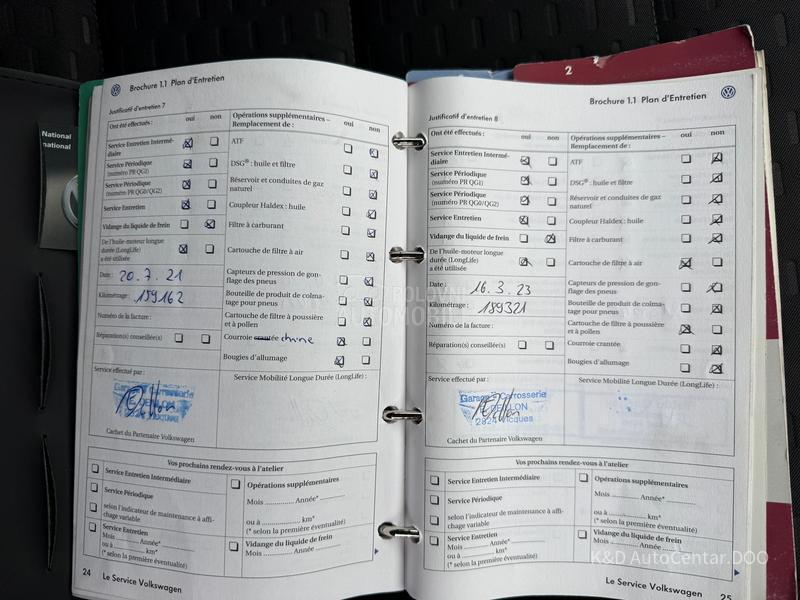 National
national
2
Brochure 1.1 Plan d'Entretien
Justificatif d'entretien 7
Ont été effectués : oui non
Service Entretien Intermé-
diaire
Service Périodique
(numéro PR QG1)
Service Périodique
(numéro PR QG0/QG2)
Service Entretien
Vidange du liquide de frein
De l'huile-moteur longue
durée (LongLife)
a été utilisée
Date : 20.7.21
Kilométrage : 159162
Numéro de la facture :
Réparation(s) conseillée(s)
Opérations supplémentaires – oui non
Remplacement de :
ATF
DSG® : huile et filtre
Réservoir et conduites de gaz
naturel
Coupleur Haldex : huile
Filtre à carburant
Cartouche de filtre à air
Capteurs de pression de gon-
flage des pneus
Bouteille de produit de colma-
tage pour pneus
Cartouche de filtre à poussière
et à pollen
Courroie crantée chaine
Bougies d'allumage
Service effectué par :
Garage Carrosserie
Cachet du Partenaire Volkswagen
Service Mobilité Longue Durée (LongLife) :
Vos prochains rendez-vous à l'atelier
Service Entretien Intermédiaire
Service Périodique
selon l'indicateur de maintenance à affi-
chage variable
Service Entretien
Mois .............. Année*
ou à .............. km*
(* selon la première éventualité)
Opérations supplémentaires
Mois .............. Année*
ou à .............. km*
(* selon la première éventualité)
Vidange du liquide de frein
Mois .............. Année
24 Le Service Volkswagen
Brochure 1.1 Plan d'Entretien
Justificatif d'entretien 8
Ont été effectués : oui non
Service Entretien Intermé-
diaire
Service Périodique
(numéro PR QG1)
Service Périodique
(numéro PR QG0/QG2)
Service Entretien
Vidange du liquide de frein
De l'huile-moteur longue
durée (LongLife)
a été utilisée
Date : 16.3.23
Kilométrage : 189321
Numéro de la facture :
Réparation(s) conseillée(s)
Opérations supplémentaires – oui non
Remplacement de :
ATF
DSG® : huile et filtre
Réservoir et conduites de gaz
naturel
Coupleur Haldex : huile
Filtre à carburant
Cartouche de filtre à air
Capteurs de pression de gon-
flage des pneus
Bouteille de produit de colma-
tage pour pneus
Cartouche de filtre à poussière
et à pollen
Courroie crantée
Bougies d'allumage
Service effectué par :
Garage Carrosserie
2824 Vicques
Cachet du Partenaire Volkswagen
Service Mobilité Longue Durée (LongLife) :
Vos prochains rendez-vous à l'atelier
Service Entretien Intermédiaire
Service Périodique
selon l'indicateur de maintenance à affi-
chage variable
Service Entretien
Mois .............. Année*
ou à .............. km*
(* selon la première éventualité)
Opérations supplémentaires
Mois .............. Année*
ou à .............. km*
(* selon la première éventualité)
Vidange du liquide de frein
Mois .............. Année
Le Service Volkswagen 25
K&D AutoCentar.DOO